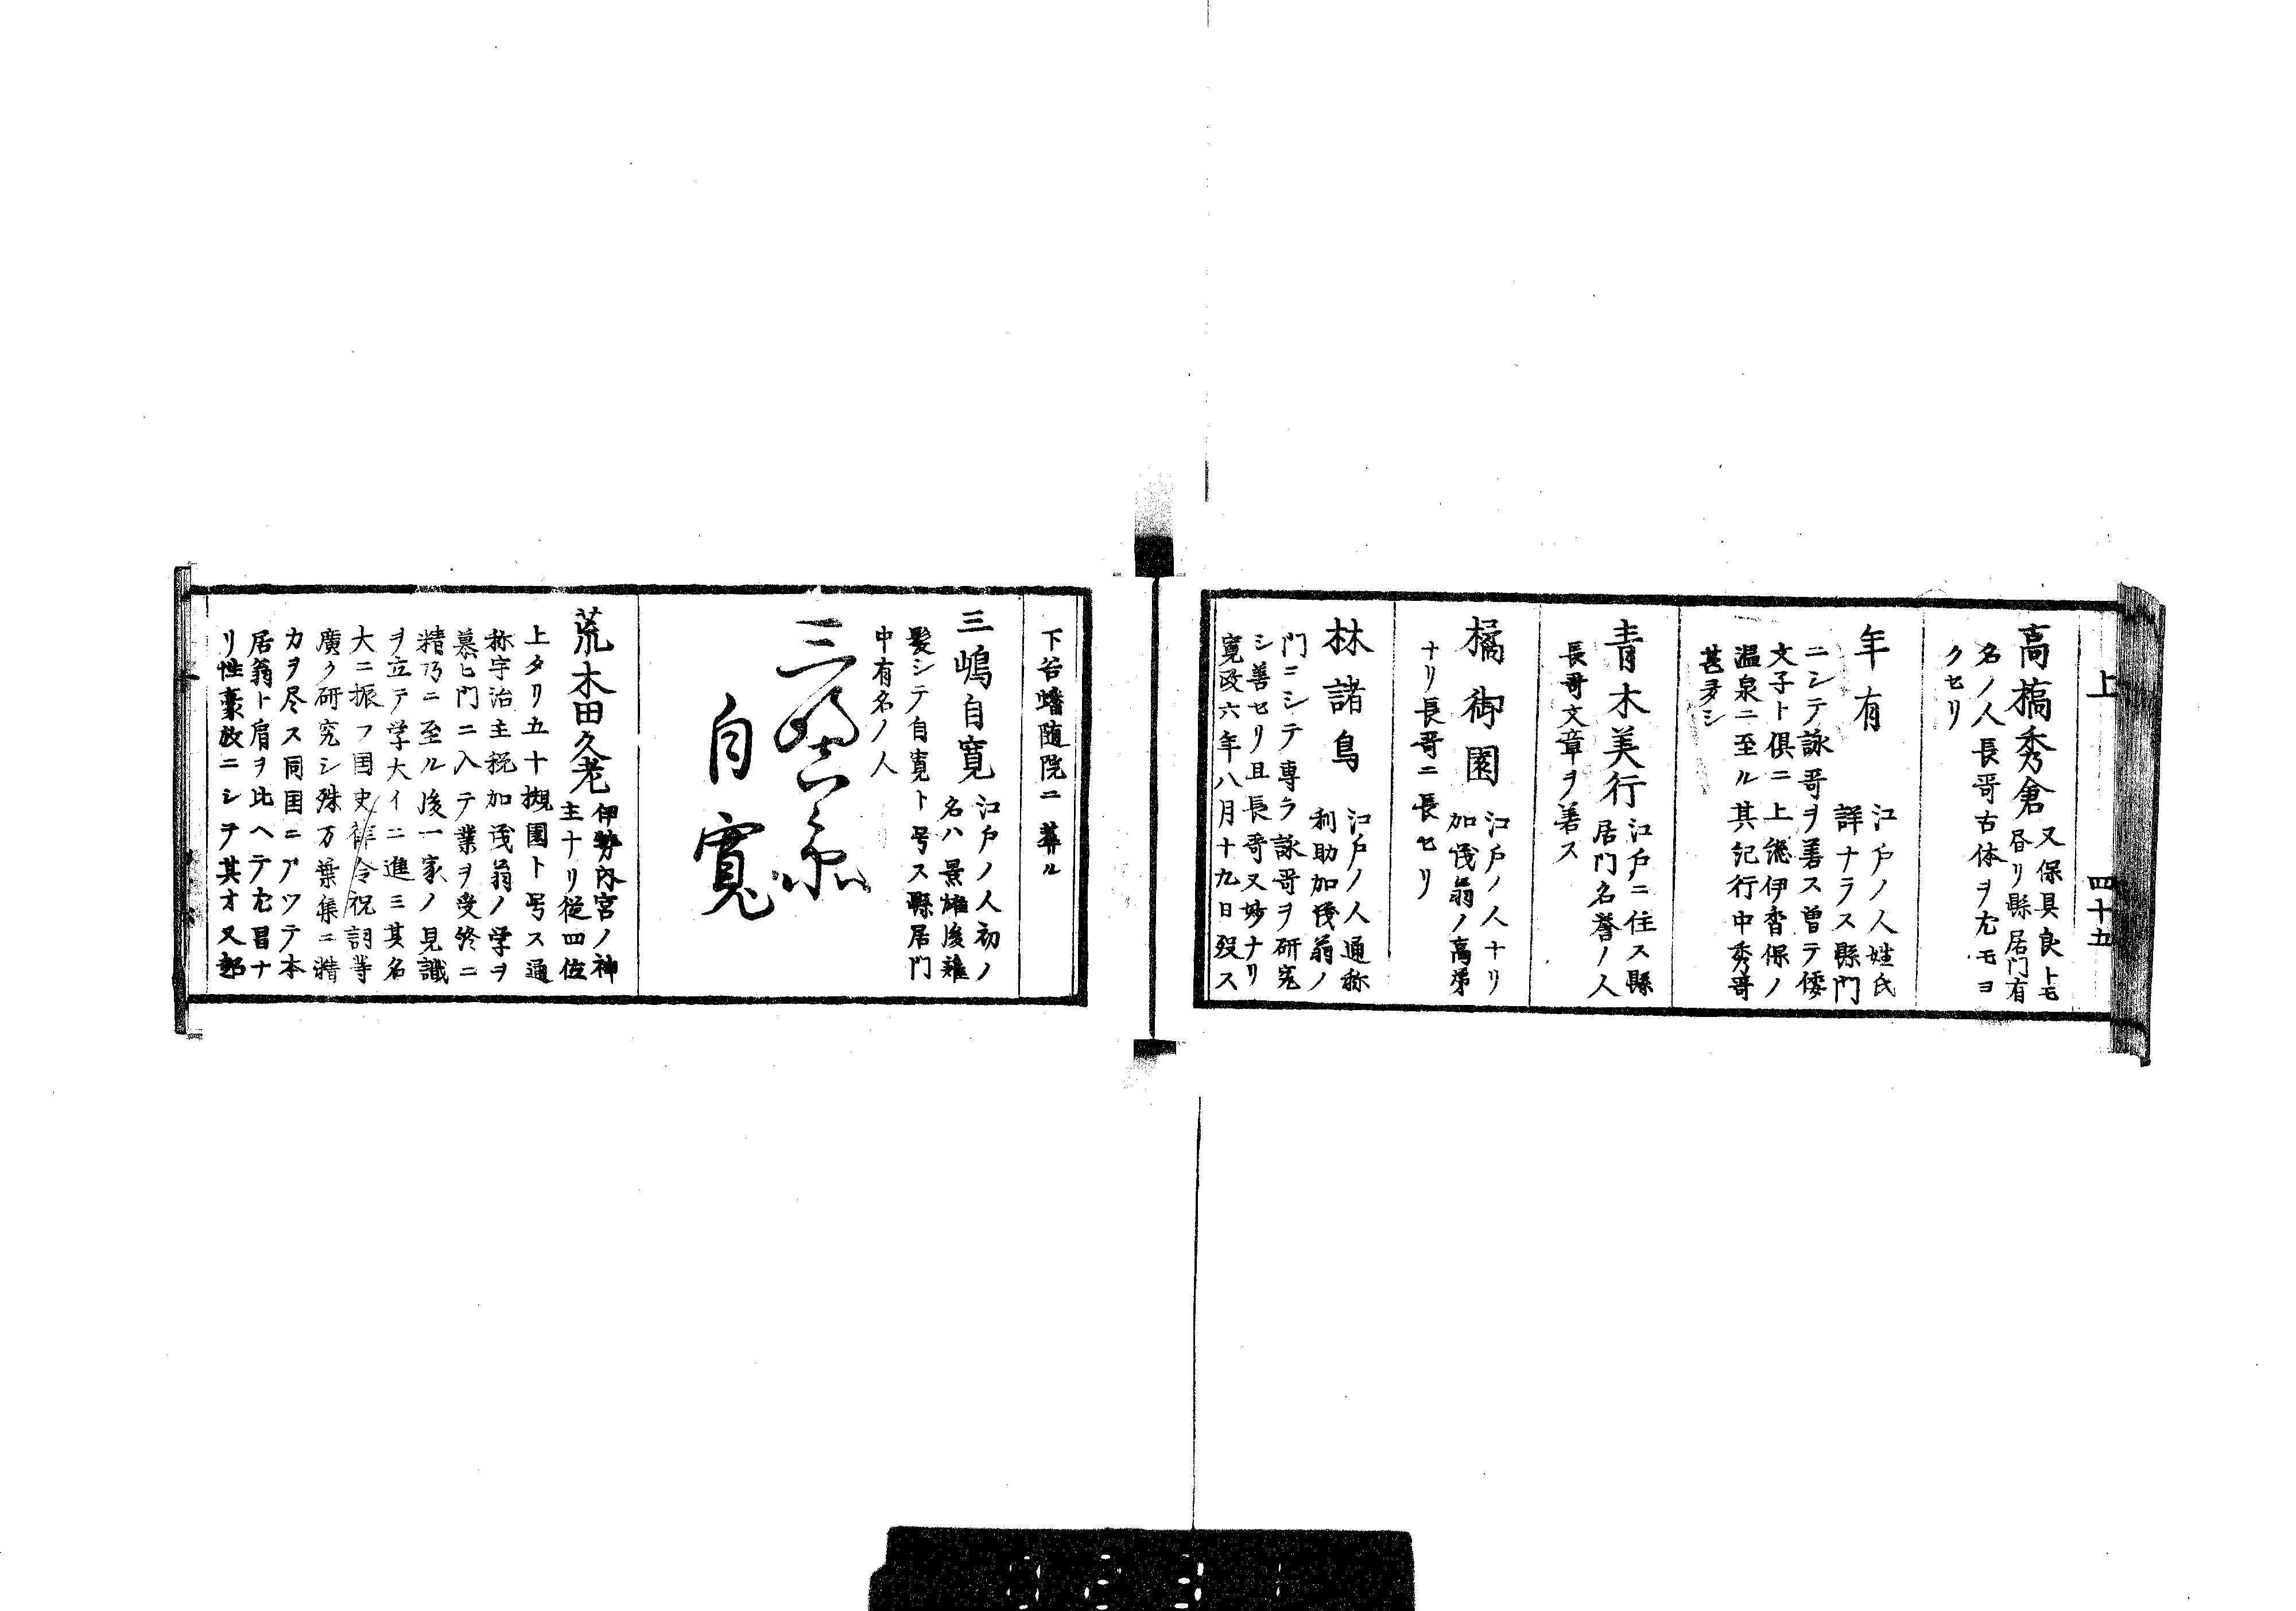 上 四十五
高槗秀倉
又保具良トモ
名ノ人長哥古体ヲ尤モヨ
クセリ
年有
江戸ノ人姓氏
詳ナラス縣門
ニシテ詠哥ヲ善ス曽テ倭
文子ト倶ニ上毛伊香保ノ
温泉ニ至ル其紀行中秀哥
甚多シ
青木美行
江戸ニ住ス縣
居門名誉ノ人
長哥文章ヲ善ス
橘御園
江戸ノ人ナリ
加茂翁ノ高弟
ナリ長哥ニ長セリ
林諸鳥
江戸ノ人通称
利助加茂翁ノ
門ニシテ専ラ詠哥ヲ研究
シ善セリ且長哥又妙ナリ
寛政六年八月十九日歿ス
下谷幡随院ニ葬ル
三嶋自寛
江戸ノ人初ノ
名ハ景雄後薙
髪シテ自寛ト号ス縣居門
中有名ノ人
自寛
荒木田久老
伊勢内宮ノ神
主ナリ従四位
上タリ五十槻園ト号ス通
称宇治主税加茂翁ノ学ヲ
慕ヒ門ニ入テ業ヲ受終ニ
精乃ニ至ル後一家ノ見識
ヲ立テ学大イニ進ミ其名
大ニ振フ国史律令祝詞等
廣ク研究シ殊万葉集ニ精
力ヲ尽ス同国ニアツテ本
居翁ト肩ヲ比ヘテ尤昌ナ
リ性豪放ニシテ其才又